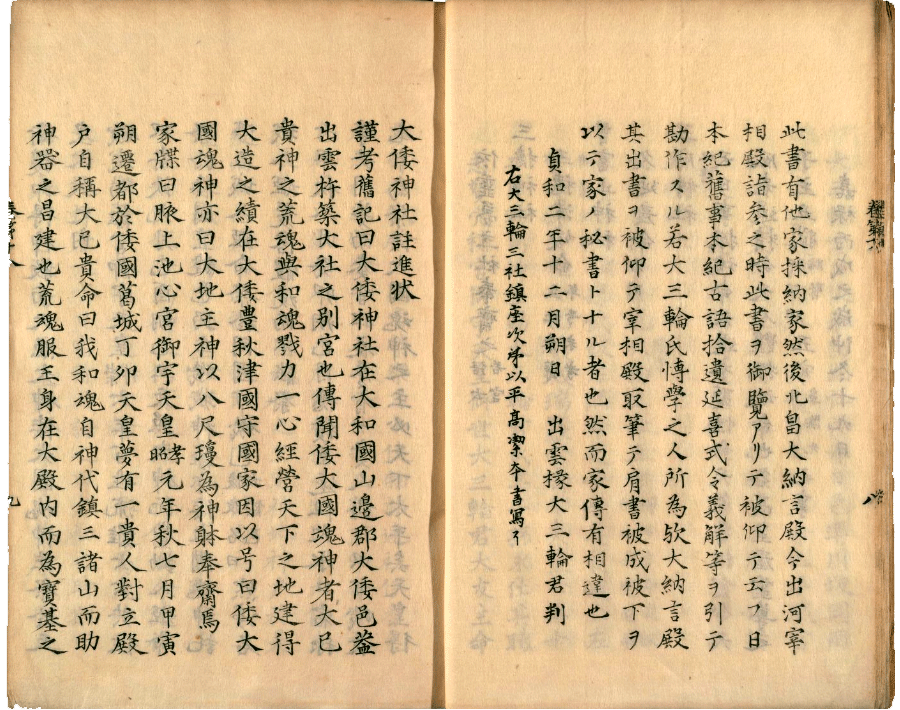 此書有他家採納家然後北畠大納言殿今出河宰
相殿詣参之時此書ヲ御覽アリテ被仰テ云フ日
本紀舊事本紀古語拾遺延喜式令義解等ヲ引テ
勘作スル若大三輪氏博學之人所為歟大納言殿
其出書ヲ被仰テ宰相殿取筆テ肩書被成被下ヲ
以テ家ノ秘書トナル者也然而家傳有相違也
貞和二年十二月朔日 出雲掾大三輪君判
右大三輪三社鎮座次第以平髙潔本書寫了
大倭神社註進狀
謹考舊記曰大倭神社在大和國山邊郡大倭邑盖
出雲杵築大社之別宮也傳聞倭大國魂神者大已
貴神之荒魂與和魂戮力一心經營天下之地建得
大造之績在大倭豊秋津國守國家因以号曰倭大
國魂神亦曰大地主神以八尺瓊為神躰奉齋焉
家牒曰腋上池心宮御宇天皇孝昭元年秋七月甲寅
朔遷都於倭國葛城丁卯天皇夢有一貴人對立殿
戸自稱大已貴命曰我和魂自神代鎮三諸山而助
神器之昌建也荒魂服王身在大殿内而為寶基之